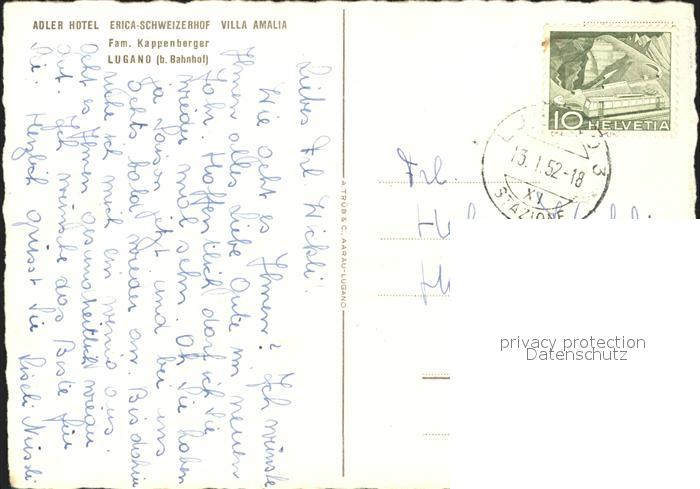 ADLER HOTEL ERICA-SCHWEIZERHOF VILLA AMALIA
Fam. Kappenberger
LUGANO (b. Bahnhof)
Liebes Frl. Wickli!
Wie geht es Ihnen? Ich wünsche
Ihnen alles Liebe Gute im neuen
Jahr. Hoffentlich darf ich Sie
wieder mal sehn. Oh Sie haben
ja Saison jetzt und bei uns
gehts bald wieder an. Bis dahin
ruhe ich mich ein wenig aus.
Geht es Ihnen gesundheitlich wieder
gut. Ich wünsche das Beste für
Sie. Herzlich grüsst Sie Liseli
A. TRÜB & C. AARAU-LUGANO
10 HELVETIA
13.1.52-18
XV
STAZIONE
3
Frl.
privacy protection
Datenschutz